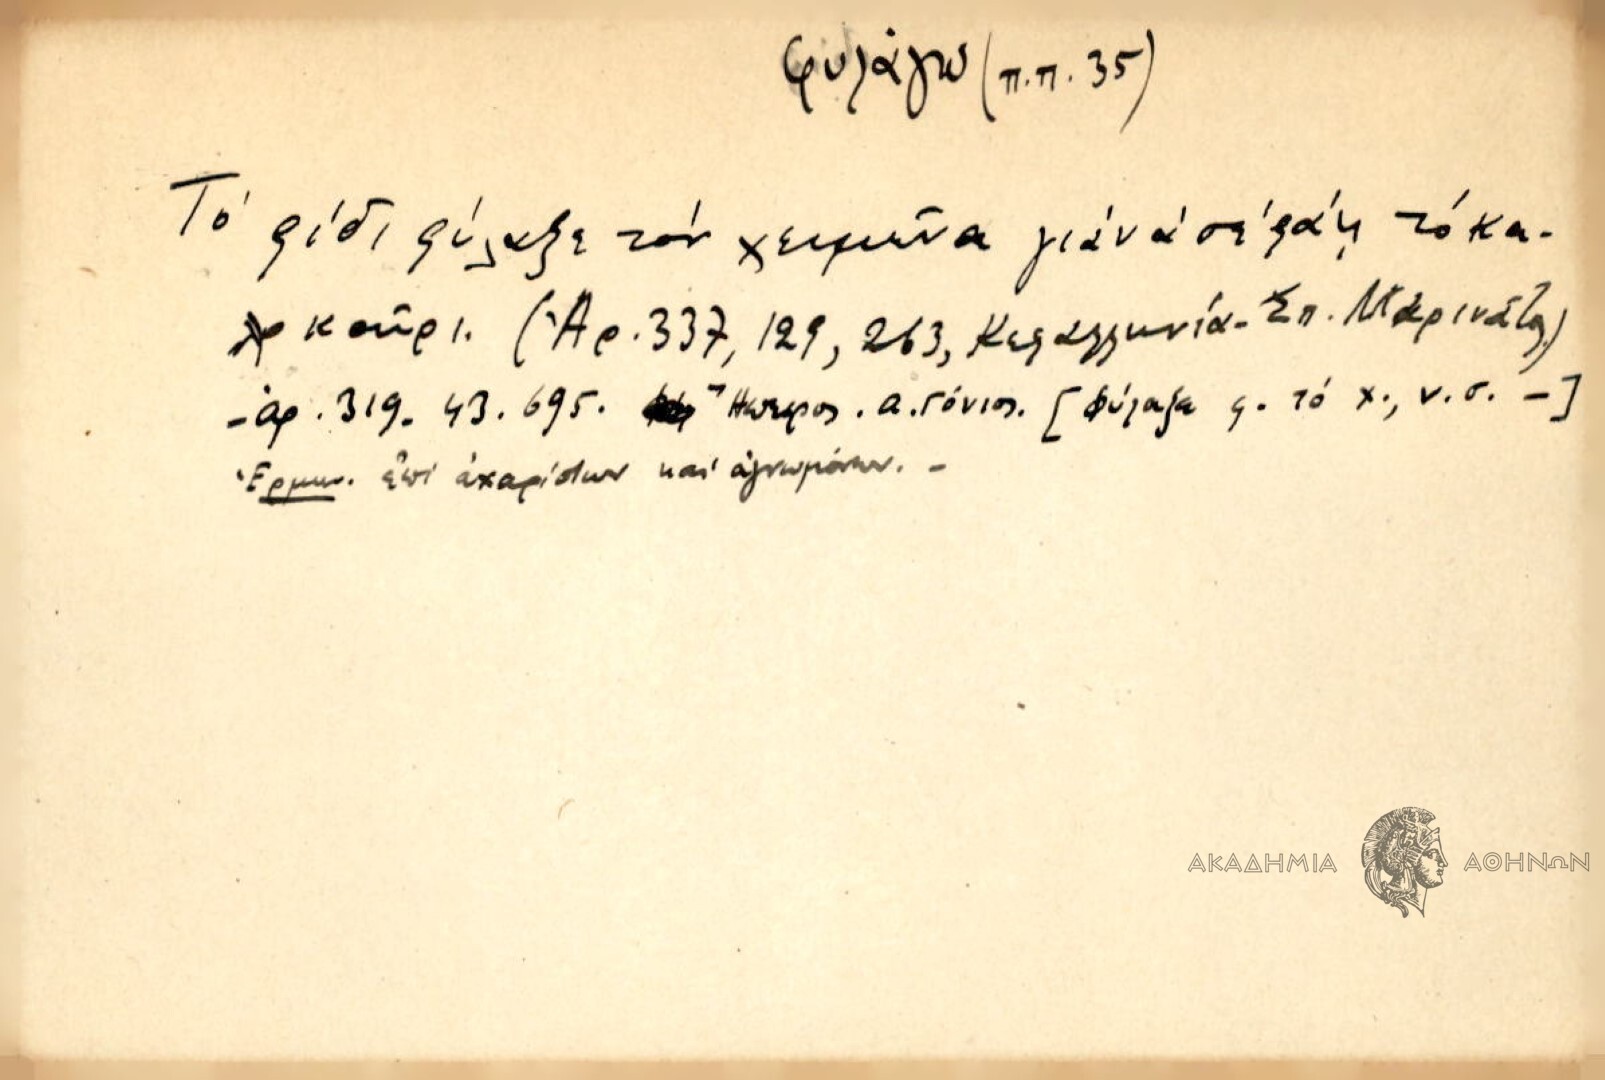 φυλάγω (π.π. 35)
Τό φίδι φύλαξε τόν χειμῶνα γιά νά σέ φάῃ τό κα-
λοκαῖρι. (Ἀρ. 337, 129, 263, Κεφαλληνία - Σπ. Μαρινᾶτος)
- ἀρ. 319. 43. 695. Ἤπειρος. α. Γόνιος. [Φύλαξα φ. τό χ., ν. σ. —]
Ἑρμην. ἐπί ἀχαρίστων καί ἀγνωμόνων. -
ΑΚΑΔΗΜΙΑ ΑΘΗΝΩΝ